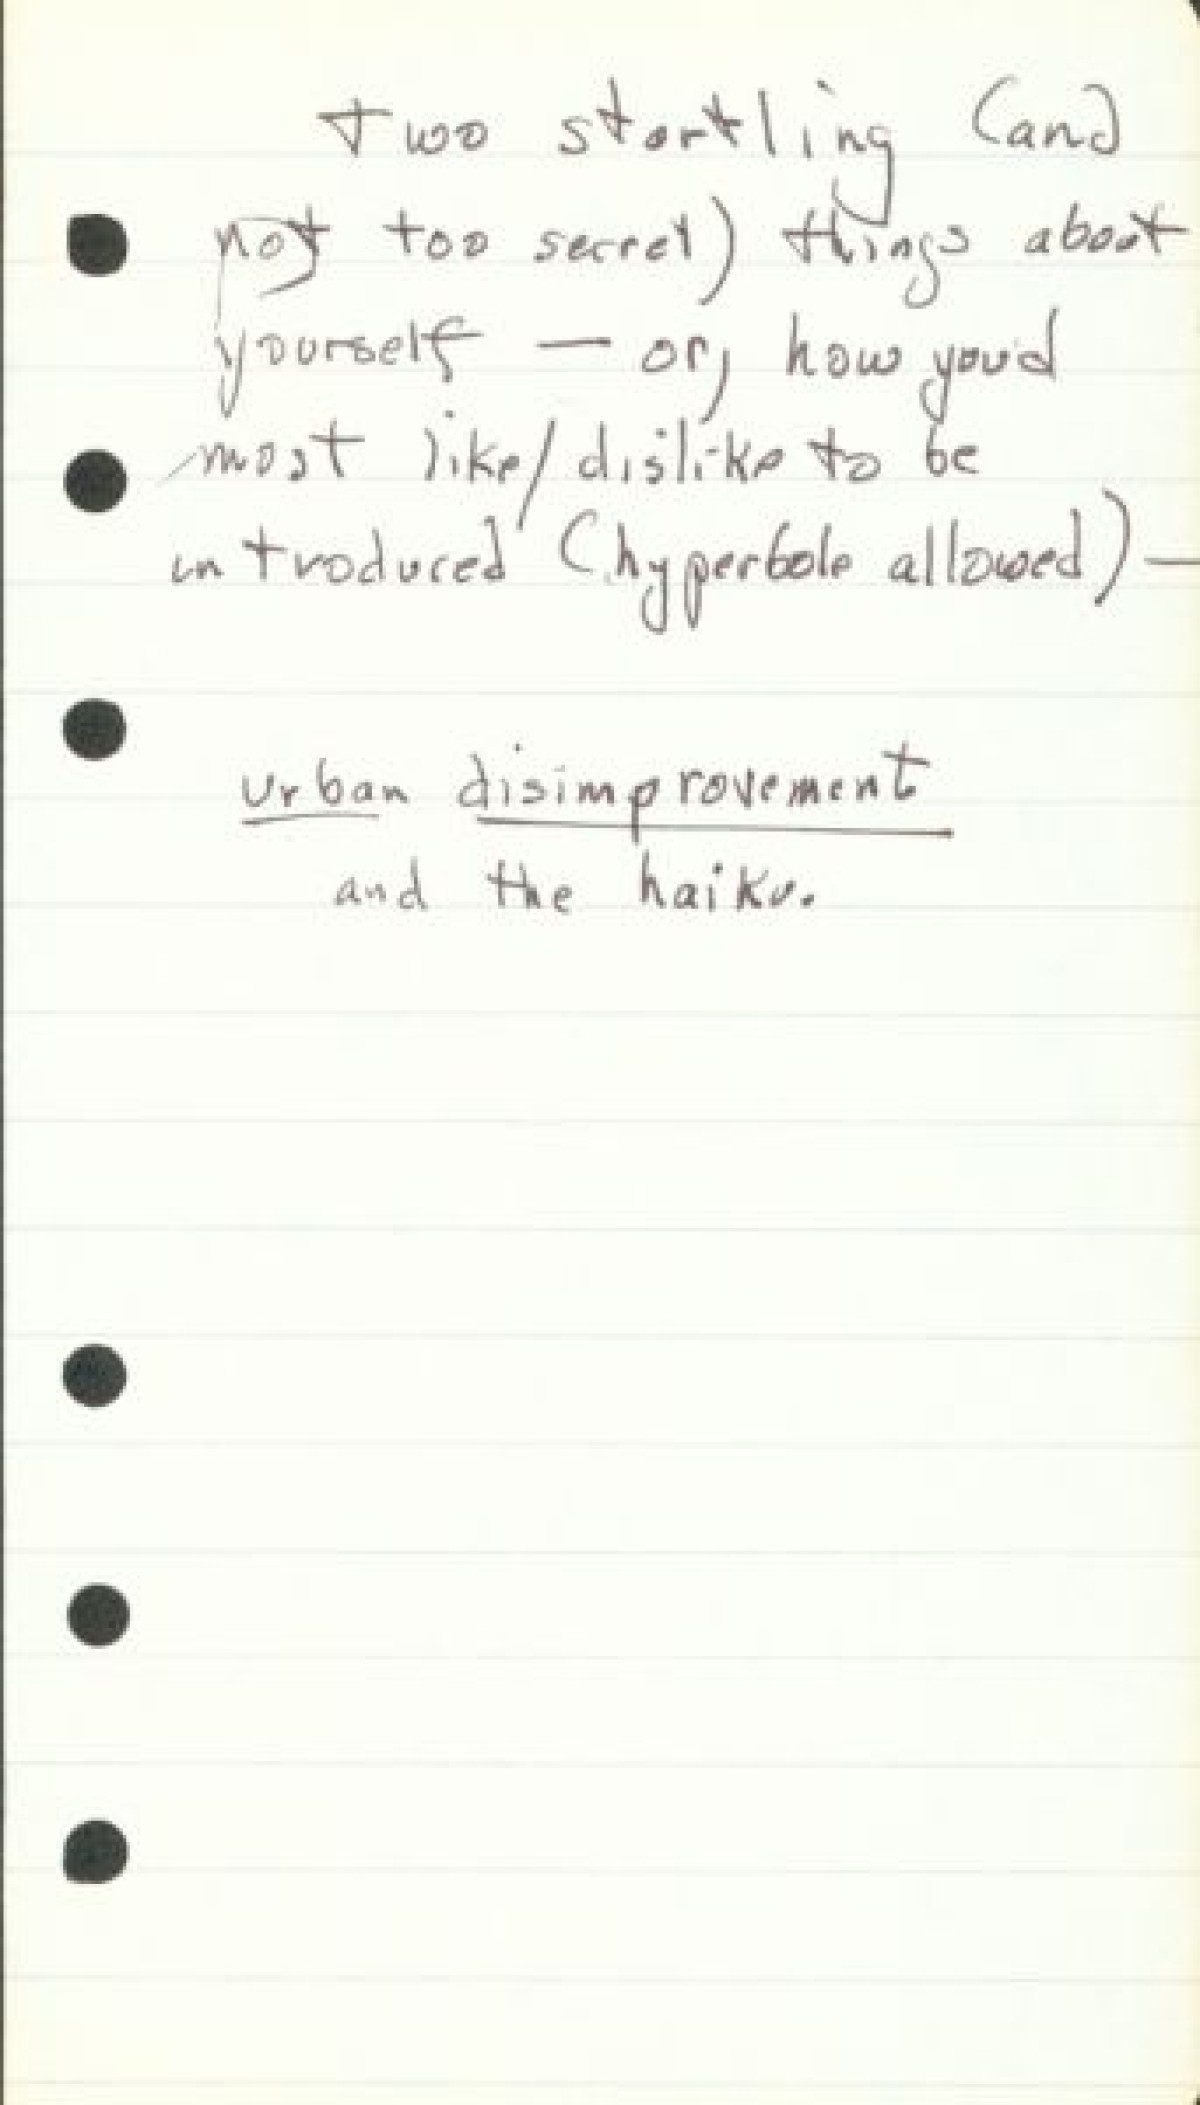 Two startling (and
not too secret) things about
yourself — or, how you'd
most like/dislike to be
introduced (hyperbole allowed) —
urban disimprovement
and the haiku.